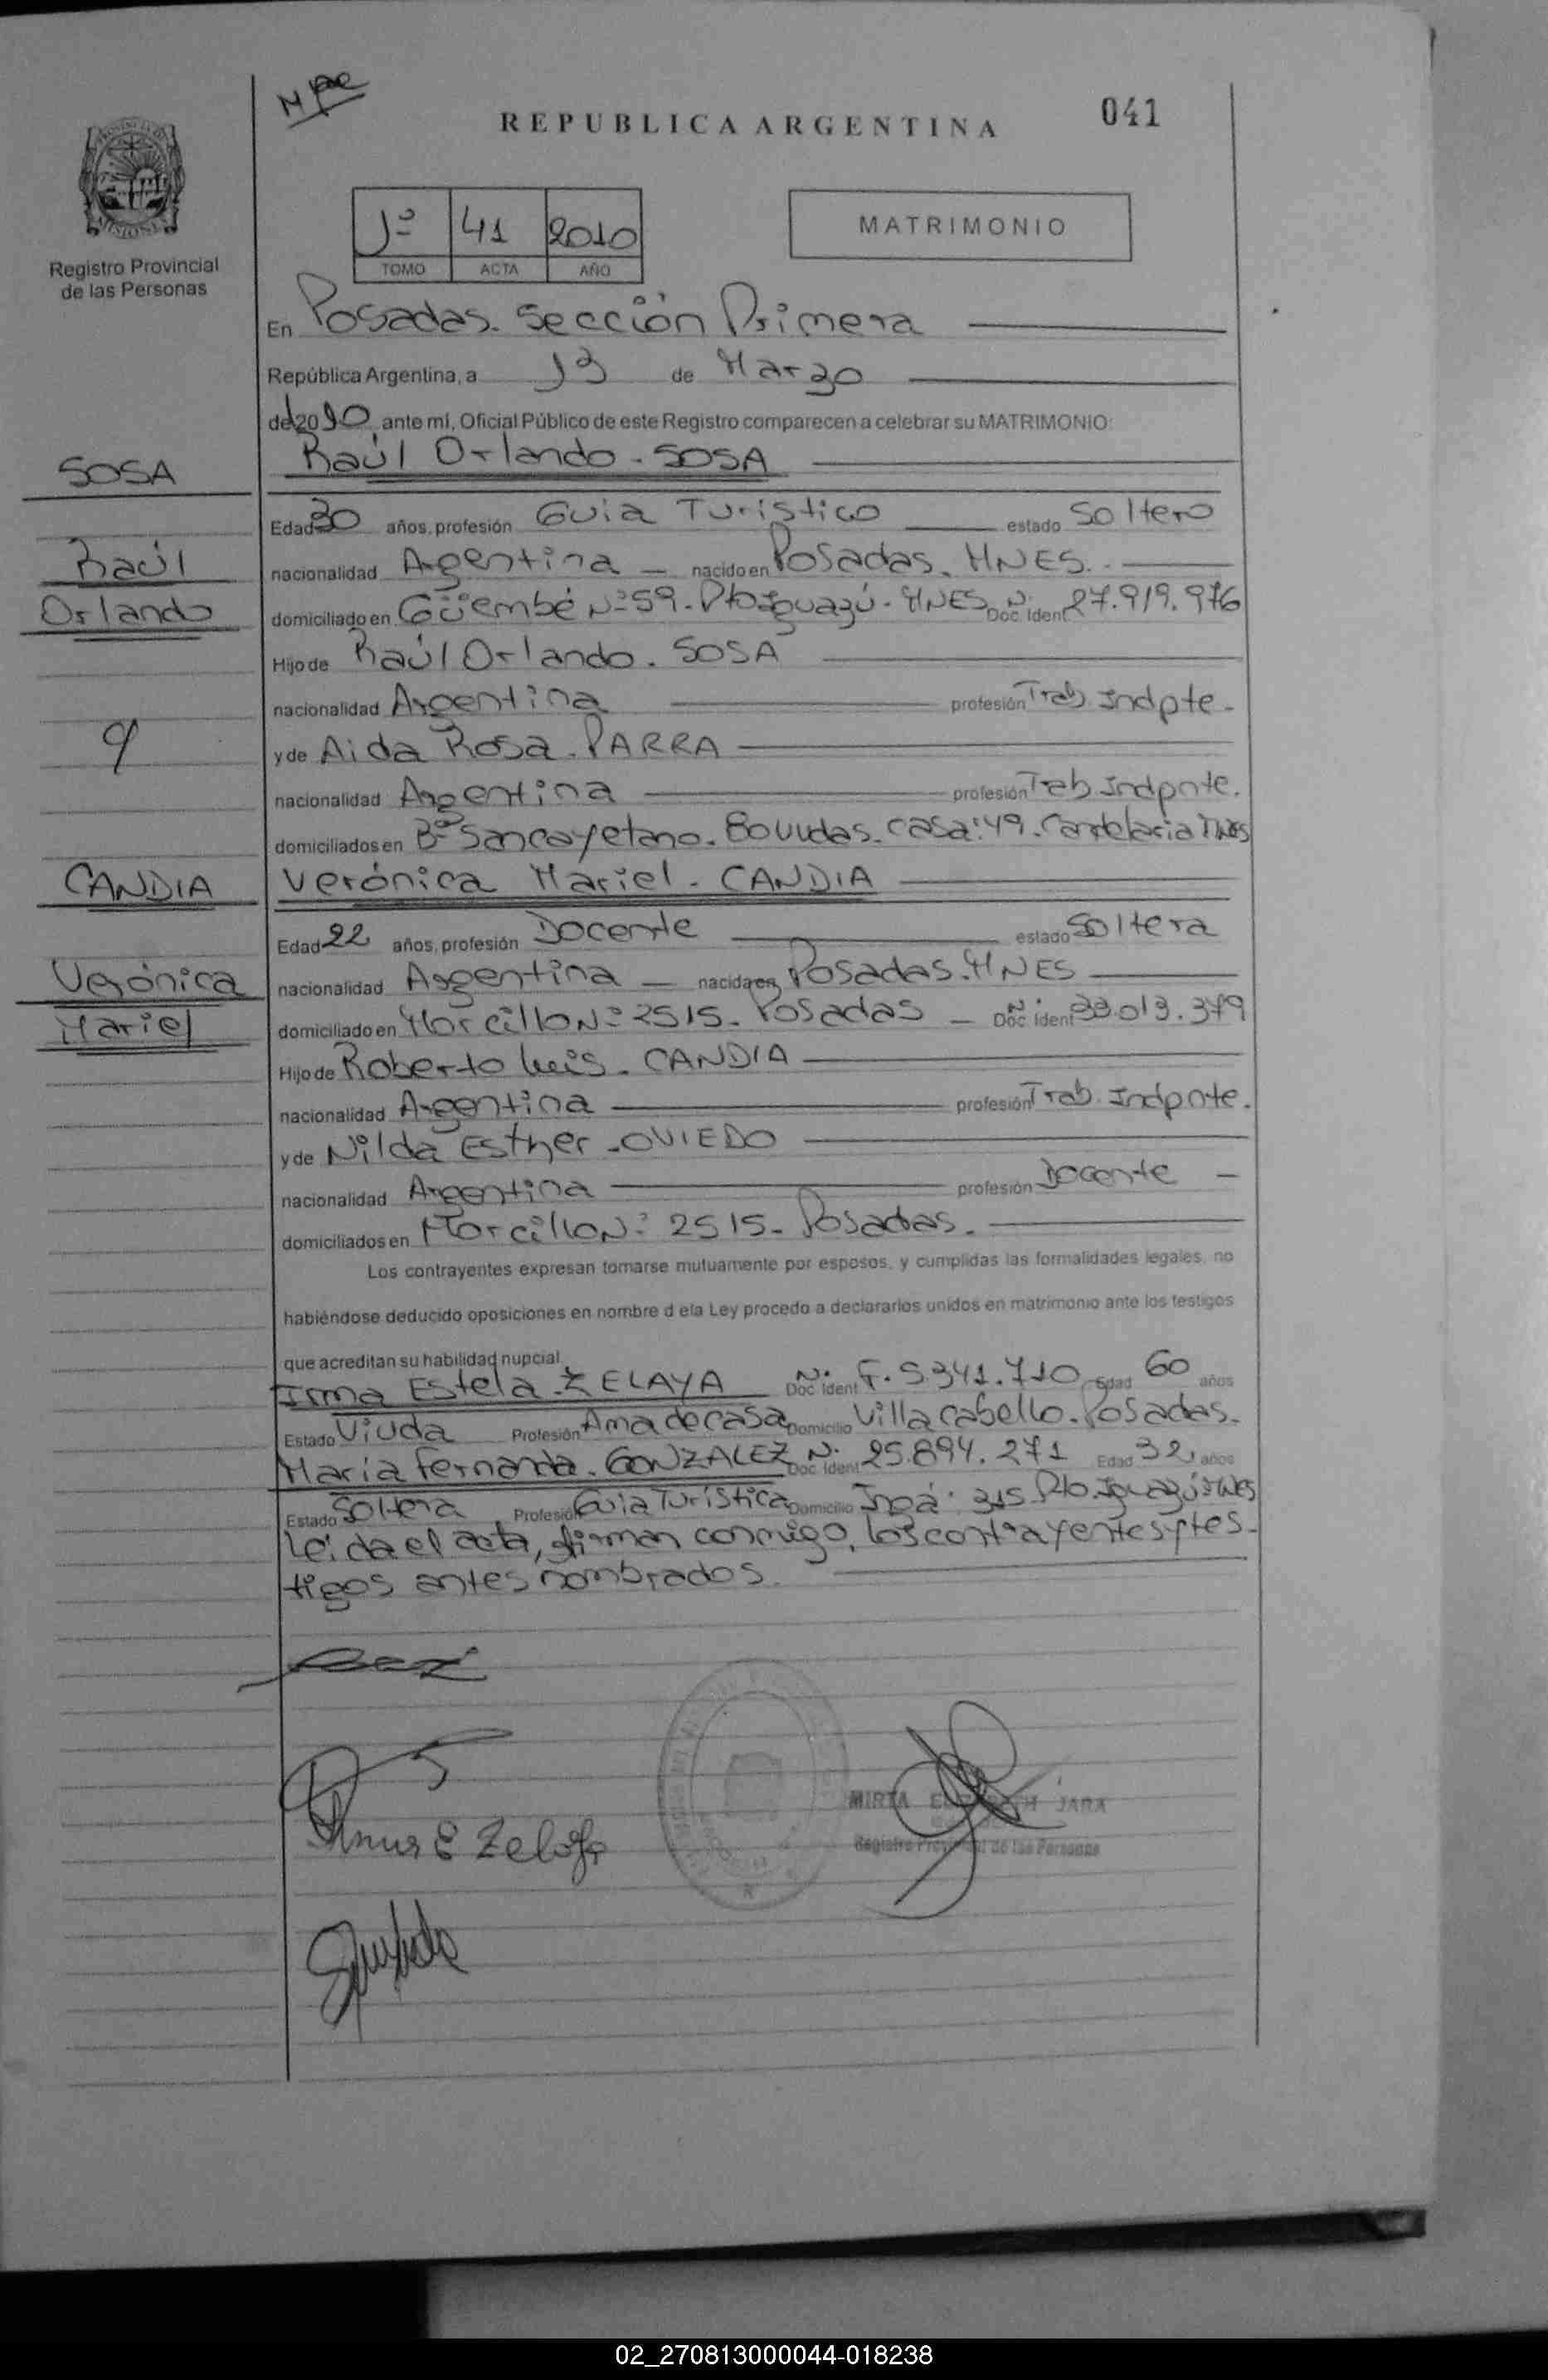 041
REPUBLICA ARGENTINA
PROVINCIA DE
MISIONES
Registro Provincial
de las Personas
1º 41 2010
TOMO ACTA AÑO
MATRIMONIO
En Posadas. Sección Primera
República Argentina, a 13 de Marzo
del 2010 ante mí, Oficial Público de este Registro comparecen a celebrar su MATRIMONIO:
SOSA
Raúl Orlando. SOSA
Edad 30 años, profesión Guia Turístico estado Soltero
Raúl
nacionalidad Argentina nacido en Posadas. MNES.
Orlando
domiciliado en Güembé Nº 59. Pto Iguazú. MNES Doc. Ident. Nº 27.919.976
Hijo de Raúl Orlando. SOSA
nacionalidad Argentina profesión Trab. Indpte.
y
y de Aida Rosa. PARRA
nacionalidad Argentina profesión Trab. Indpnte.
domiciliados en Bº San Cayetano. Casa: 49. Candelaria MNES
CANDIA
Verónica Mariel. CANDIA
Edad 22 años, profesión Docente estado Soltera
Verónica
nacionalidad Argentina nacida en Posadas. MNES
Mariel
domiciliado en Morcillo Nº 2515. Posadas Doc. Ident. Nº 33.013.379
Hijo de Roberto Luis. CANDIA
nacionalidad Argentina profesión Trab. Indpnte.
y de Nilda Esther. OVIEDO
nacionalidad Argentina profesión Docente
domiciliados en Morcillo Nº 2515. Posadas.
Los contrayentes expresan tomarse mutuamente por esposos, y cumplidas las formalidades legales, no
habiéndose deducido oposiciones en nombre d ela Ley procedo a declararlos unidos en matrimonio ante los testigos
que acreditan su habilidad nupcial
Irma Estela. ZELAYA Doc Ident Nº F. 5.341.710 Edad 60 años
Estado Viuda Profesión Ama de casa Domicilio Villa Cabello. Posadas.
María Fernanda. GONZALEZ Doc Ident Nº 25.894.271 Edad 32 años
Estado Soltera Profesión Guia Turística Domicilio Ingá: 315. Pto. Iguazú. MNES
Leída el acta, firman conmigo, los contrayentes y tes-
tigos antes nombrados.
Irma E Zelaya
MIRTA ELIZABETH JARA
Registro Provincial de las Personas
02_270813000044-018238